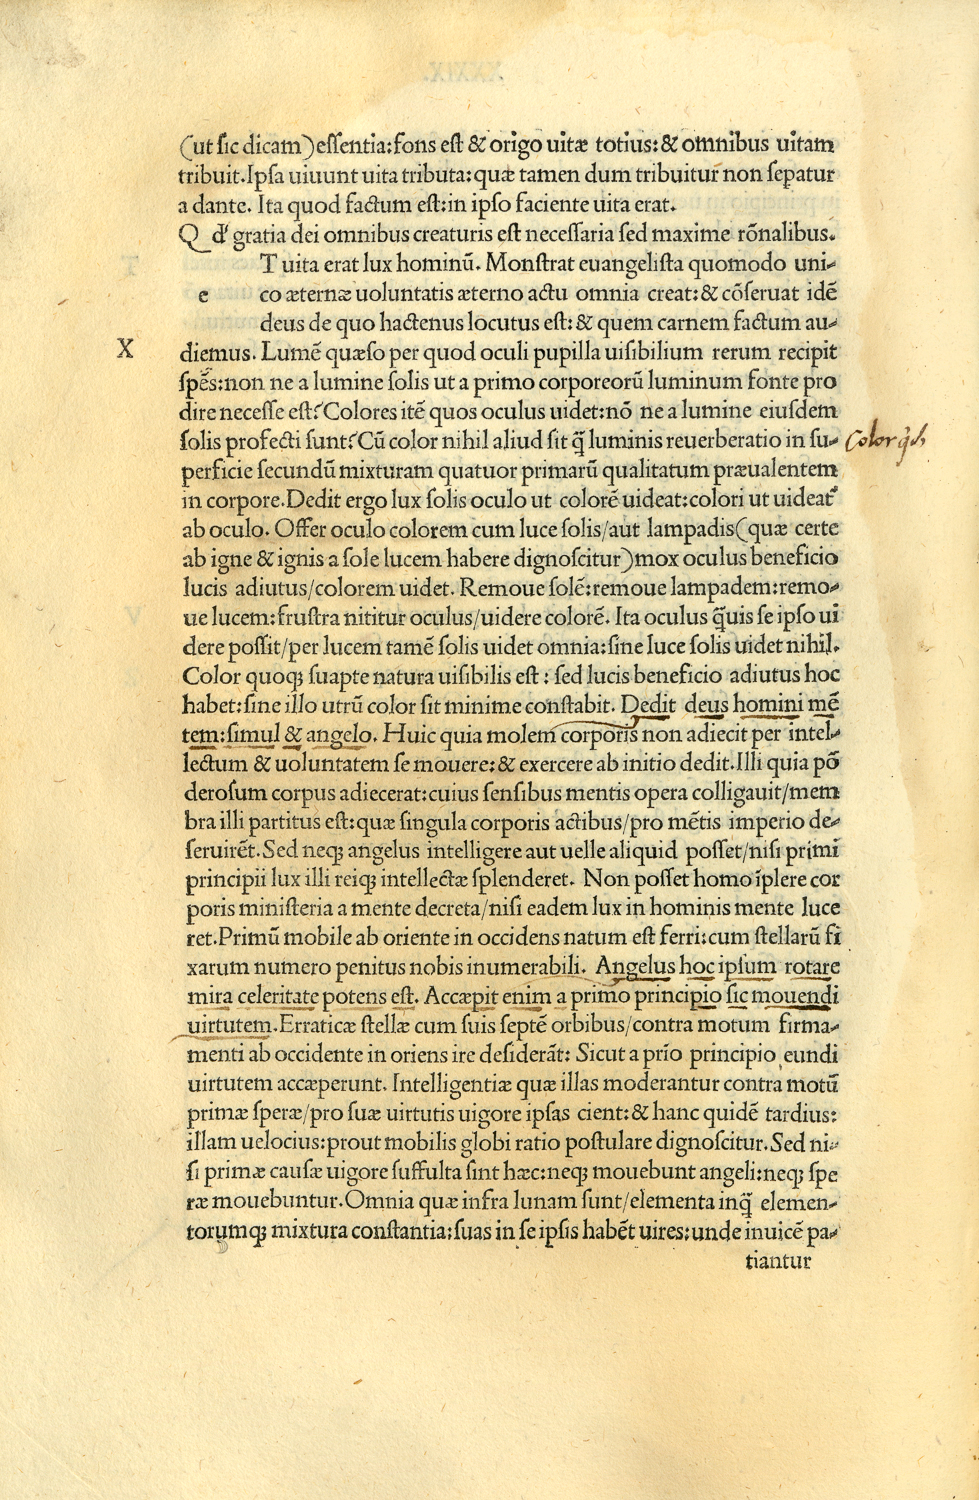 (ut sic dicam) essentia: fons est & origo uitæ totius: & omnibus uitam
tribuit. Ipsa uiuunt uita tributa: quæ tamen dum tribuitur non sepatur
a dante. Ita quod factum est: in ipso faciente uita erat.
Q d' gratia dei omnibus creaturis est necessaria sed maxime rōnalibus.
T uita erat lux hominū. Monstrat euangelista quomodo uni-
e co æternæ uoluntatis æterno actu omnia creat: & cōseruat idē
deus de quo hactenus locutus est: & quem carnem factum au-
X diemus. Lumē quæso per quod oculi pupilla uisibilium rerum recipit
spēs: non ne a lumine solis ut a primo corporeorū luminum fonte pro
dire necesse est? Colores itē quos oculus uidet: nō ne a lumine eiusdem
solis profecti sunt? Cū color nihil aliud sit q̄ luminis reuerberatio in su- Color qd
perficie secundū mixturam quatuor primarū qualitatum præualentem
in corpore. Dedit ergo lux solis oculo ut colorē uideat: colori ut uideat'
ab oculo. Offer oculo colorem cum luce solis/aut lampadis (quæ certe
ab igne & ignis a sole lucem habere dignoscitur) mox oculus beneficio
lucis adiutus/colorem uidet. Remoue solē: remoue lampadem: remo-
ue lucem: frustra nititur oculus/uidere colorē. Ita oculus q̄uis se ipso ui
dere possit/per lucem tamē solis uidet omnia: sine luce solis uidet nihil.
Color quoq; suapte natura uisibilis est: sed lucis beneficio adiutus hoc
habet: sine illo utrū color sit minime constabit. Dedit deus homini mē
tem: simul & angelo. Huic quia molem corporis non adiecit per intel-
lectum & uoluntatem se mouere: & exercere ab initio dedit. Illi quia pō
derosum corpus adiecerat: cuius sensibus mentis opera colligauit/mem
bra illi partitus est: quæ singula corporis actibus/pro mētis imperio de-
seruirēt. Sed neq; angelus intelligere aut uelle aliquid posset/nisi primi
principii lux illi reiq; intellectæ splenderet. Non posset homo īplere cor
poris ministeria a mente decreta/nisi eadem lux in hominis mente luce
ret. Primū mobile ab oriente in occidens natum est ferri: cum stellarū fi
xarum numero penitus nobis inumerabili. Angelus hoc ipsum rotare
mira celeritate potens est. Accæpit enim a primo principio sic mouendi
uirtutem. Erraticæ stellæ cum suis septē orbibus/contra motum firma-
menti ab occidente in oriens ire desiderāt: Sicut a prīo principio eundi
uirtutem accæperunt. Intelligentiæ quæ illas moderantur contra motū
primæ speræ/pro suæ uirtutis uigore ipsas cient: & hanc quidē tardius:
illam uelocius: prout mobilis globi ratio postulare dignoscitur. Sed ni-
si primæ causæ uigore suffulta sint hæc: neq; mouebunt angeli: neq; spe
ræ mouebuntur. Omnia quæ infra lunam sunt/elementa inq̄ elemen-
torumq; mixtura constantia: suas in se ipsis habēt uires: unde inuicē pa-
tiantur